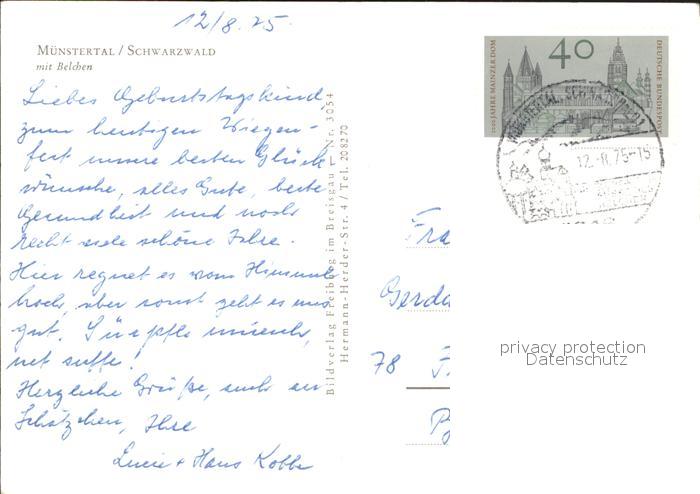 12/8.75.
MÜNSTERTAL / SCHWARZWALD
mit Belchen
Liebes Geburtstagskind,
zum heutigen Wiegen-
fest unsere besten Glück
wünsche, alles Gute, beste
Gesundheit und noch
recht viele schöne Jahre.
Hier regnet es vom Himmel
hoch, aber sonst geht es uns
gut.
net suffe!
Herzliche Grüße, auch an
Schätzchen, Ihre
Lucie + Hans Kobbe
Bildverlag Freiburg im Breisgau – Nr. 3054
Hermann-Herder-Str. 4 / Tel. 208270
1000 JAHRE MAINZER DOM
40
DEUTSCHE BUNDESPOST
MÜNSTERTAL, SCHWARZWALD
12.-8.75-15
Fra
Gerda
78 F.
privacy protection
Datenschutz